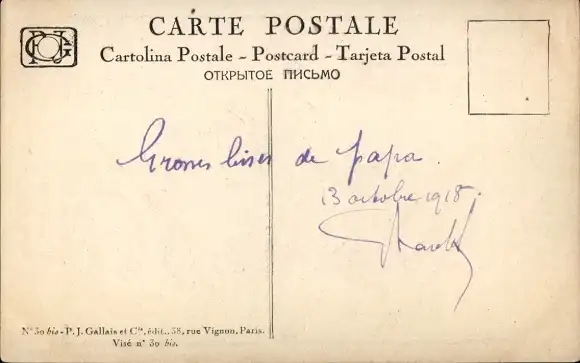 CARTE POSTALE
Cartolina Postale - Postcard - Tarjeta Postal
ОТКРЫТОЕ ПИСЬМО
Grosses bises de papa.
13 octobre 1918.
N° 30 bis - P. J. Gallais et Cie, édit., 38, rue Vignon, Paris.
Visé n° 30 bis.